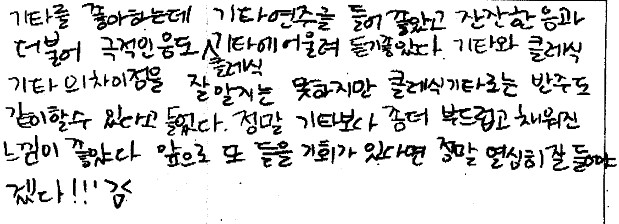 기타를 좋아하는데 기타연주를 들어 좋았고 잔잔한 음과
더불어 극적인 음도 클레식 기타에 어울려 듣기좋았다. 기타와 클레식
기타의 차이점을 잘 알지는 못하지만 클레식기타로는 반주도
같이할수 있다고 들었다. 정말 기타보다 좀더 부드럽고 채워진
느낌이 좋았다 앞으로 또 들을 기회가 있다면 정말 열심히 잘 들어야
겠다!!!